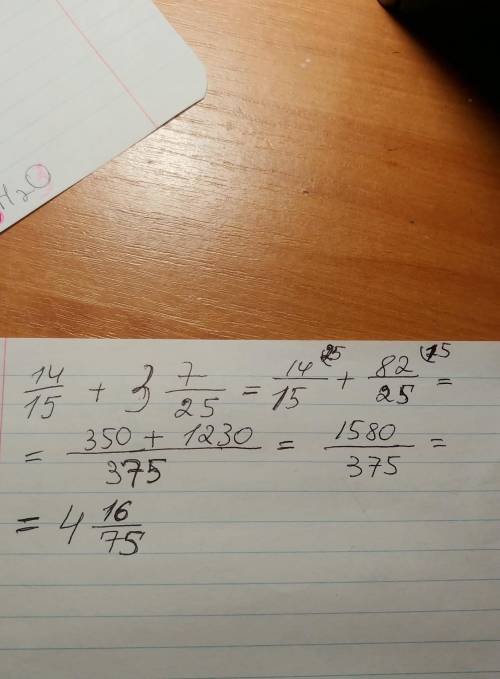 H₂O
14/15 + 3 7/25 = 14/15 (25 + 82/25 (15 =
= 350 + 1230/375 = 1580/375 =
= 4 16/75